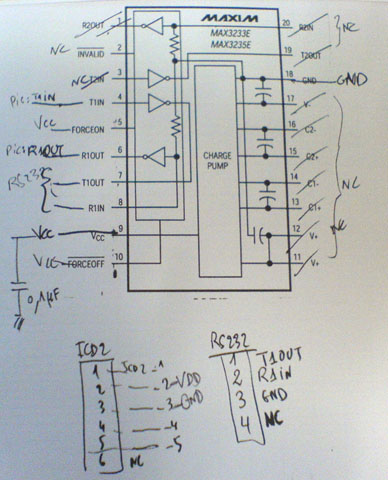 MAXIM
MAX3233E
MAX3235E
R2OUT 1
NC
INVALID 2
NC T2IN 3
T1IN T1IN 4
Vcc FORCEON 5
R1OUT R1OUT 6
RS232
T1OUT 7
R1IN 8
Vcc VCC 9
Vcc FORCEOFF 10
0,1µF
CHARGE
PUMP
20 R2IN
NC
19 T2OUT
18 GND GND
17 V-
16 C2-
15 C2+
14 C1-
NC
13 C1+
12 V+
11 V+
ICD2
1 ICD2 -1
2 -2-VDD
3 -3-GND
4 -4
5 -5
6 NC
RS232
1 T1OUT
2 R1IN
3 GND
4 NC